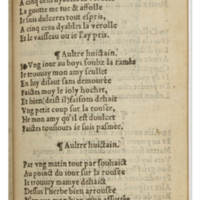 A cinq cens dyables la verolle
La goutte me tue & affolle
Ie suis dolours tout espris,
A cinq cens dyables la verolle
Et le vaisseau ou ie l'ay pris.
¶ Aultre huictain.
Vng iour au boys soubz la ramee
Ie trouuay mon amy seullet
En luy disant sans demouree
Faictes moy le ioly hochet,
Et bien dist il faisons dehait
Vng petit coup sur la rousee,
He mon amy qu'il est doulcet
Faictes tousiours ie suis pasmee.
¶ Aultre huictain.
Par vng matin tout par souhaict
Au poinct du iour sur la rousee
Ie trouuay mamye dehait
Dessus l'herbe bien arrousee